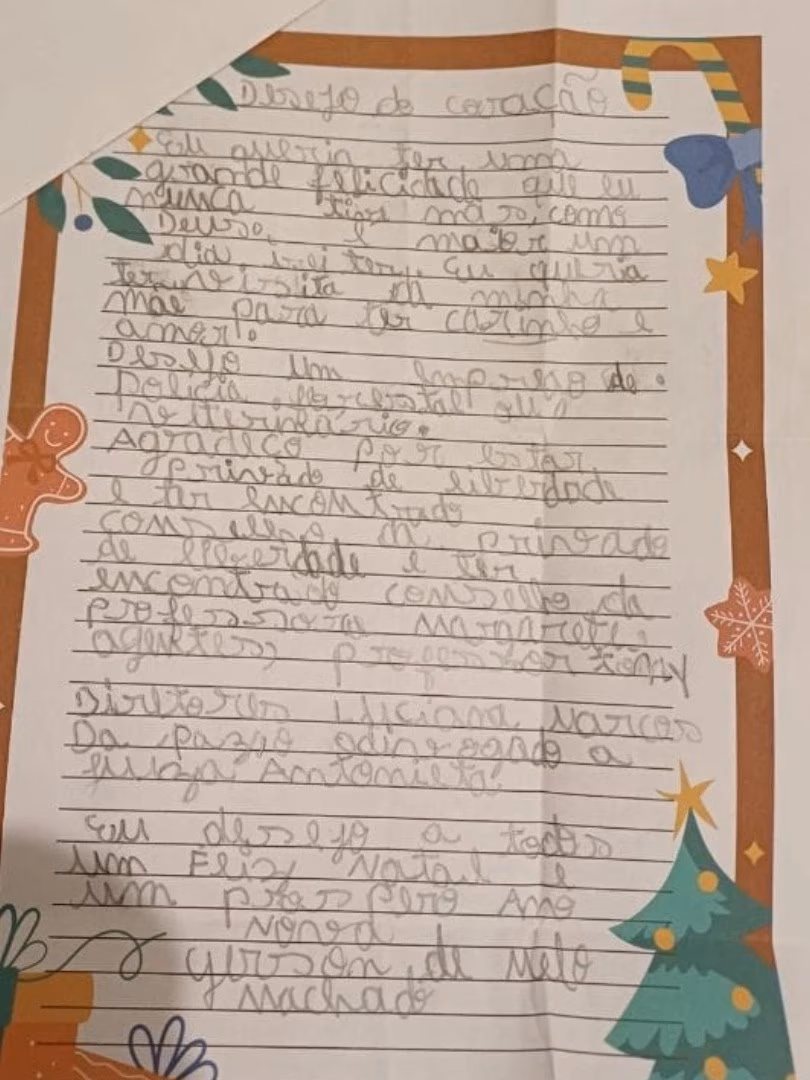 Desejo do coração
Eu queria ter uma
grande felicidade que eu
nunca tive mas, como
Deuso, e maior um
dia irei ter. Eu queria
ter veisita da minha
mãe para ter carinho e
amor.
Desejo um emprego de
Policia ou
veiterinário.
Agradeço por estar
privado de liberdade
e ter encontrado
conselho da privado
de liberdade e ter
encontrado conselho da
professora Margarete,
agentes, professor tonny
Diretores Luciana Marcos
Da pazão a
juiza Antonieta
Eu desejo a todos
um Feliz Natal e
um prospero Ano
Novo
gerson de Melo
Machado